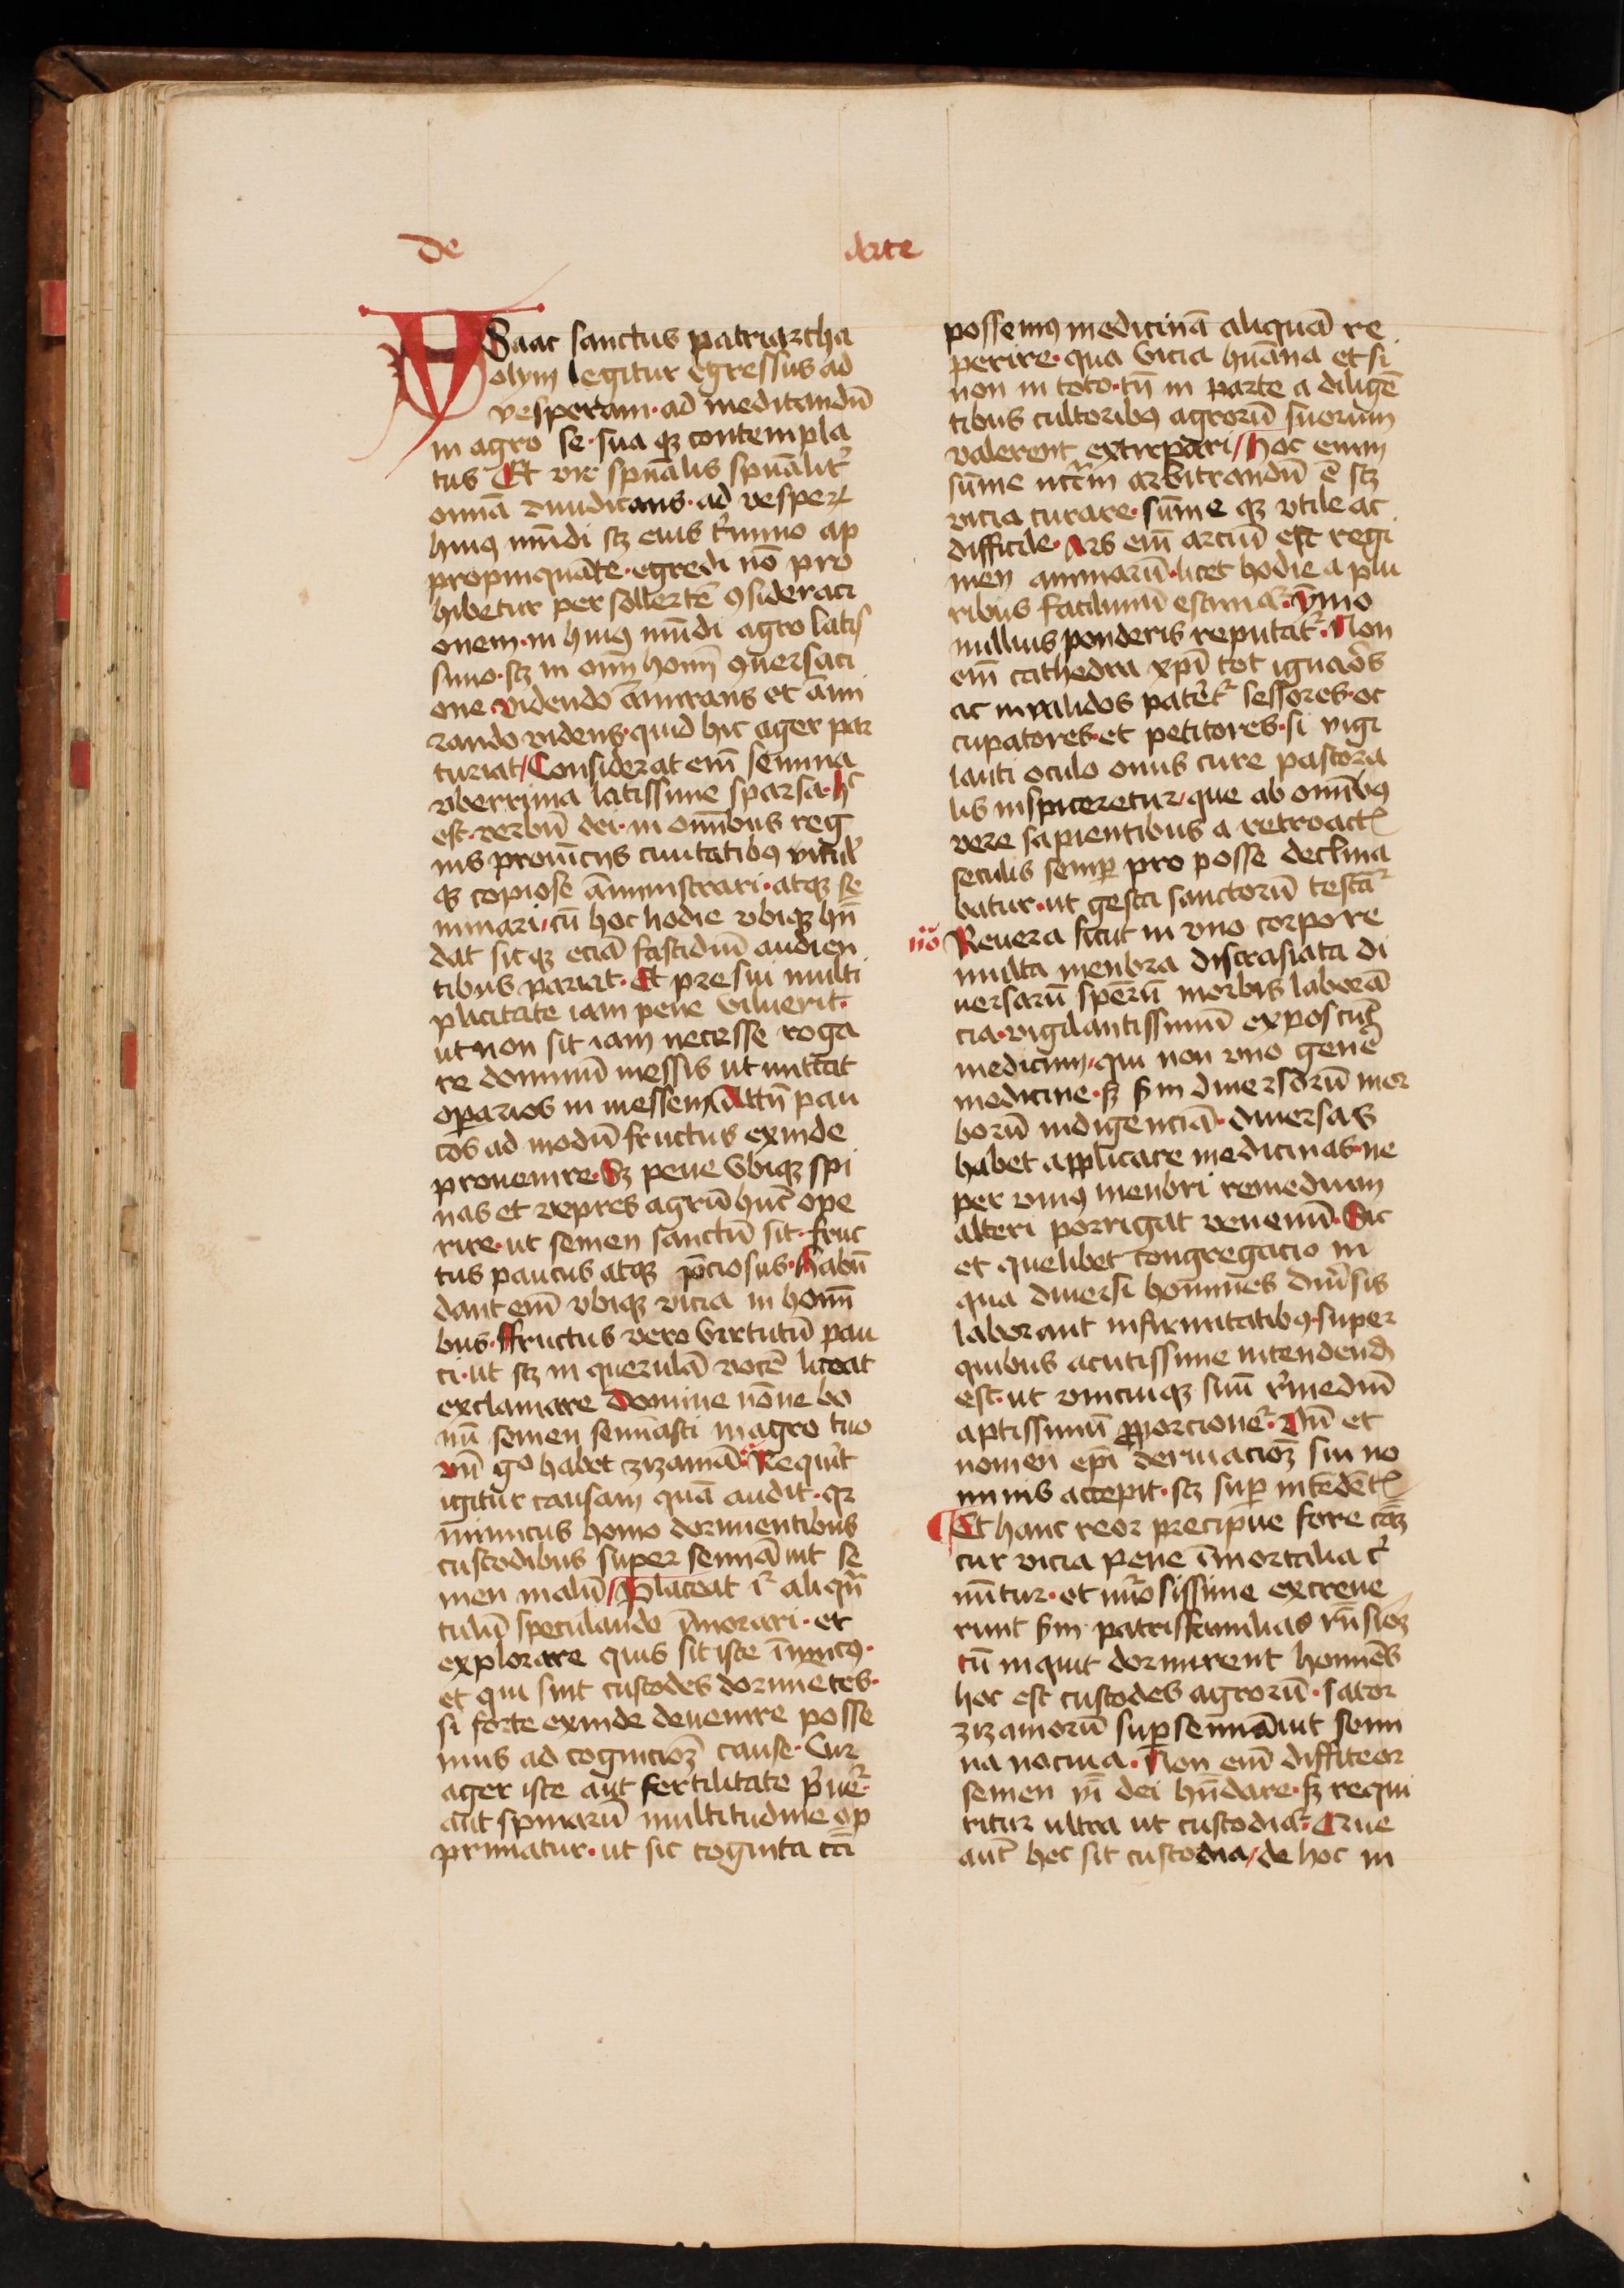 de arte
Ysaac sanctus patriarcha
olym legitur egressus ad
vesperam · ad meditandū
in agro se · sua qꝫ contempla
tus Et vir spūalis spūalitʳ
omnā diiudicans · ad vesperꝫ
huiꝰ mūdi scꝫ eius t'mino ap
propinquāte · egredi nō pro
hibetur per sollertē ꝯsideraci
onem · in huiꝰ mūdi agro latis
simo · scꝫ in om̄i homī ꝯuersaci
one · videndo āmirans et āmi
rando videns · quid hic ager par
turiat / Considerat em̄ semina
vberrima latissime sparsa · h
est · verbū dei · in om̄ibus reg
nis prouincijs ciuitatibꝰ
qꝫ copiose āministrari · atqꝫ se
minari / cū hoc hodie vbiqꝫ hū
dat sitqꝫ eciā fastidiū audien
tibus pariat · Et pre sui multi
plicitate iam pene viluerit ·
ut non sit iam necesse roga
re dominū messis ut mittat
operarios in messem Attn̄ pau
cos ad modū fructus exinde
prouenire · Sꝫ pene vbiqꝫ spi
nas et vepres agrū hūc ope
rire · ut semen sanctū sit · fruc
tus paucus atqꝫ p̄ciosus · Habū
dant em̄ vbiqꝫ vicia in homī
bus · ffructus vero virtutū pau
ci · ut scꝫ in querulā vocē liceat
exclamare Domine nōne bo
nū semen seminasti in agro tuo
vn̄ gº habet zizaniā · Requirit
igitur causam quā audit · qꝛ
inimicus homo dormientibus
custodibus super semināuit se
men malū / Placeat iᵍ aliqn̄
tulū speculando īmorari · et
explorare quis sit iste inimicꝰ ·
et qui sint custodes dormiētes ·
si forte exinde deuenire posse
mus ad cognicioꝫ cause · Cur
ager iste aut fertilitate p'uet'
aut spinarū multitudine op
primatur · ut sic cognita cā
possemꝰ medicinā aliquā re
perire · qua vicia hūana et si
non in toto · tn̄ in parte a diligē
tibus cultoribꝰ agrorū suorum
valerent extirpari / Hoc enim
sūme nccm̄ arbitrandū ē scꝫ
vicia curare · sūme qꝫ vtile ac
difficile · Ars em̄ arciū est regi
men animarū · licet hodie a plu
ribus facilimū estimaʳ · ymo
nullius ponderis reputatʳ · Non
em̄ cathedra xpī tot ignauos
ac inualidos patēt' sessores · oc
cupatores · et petitores · si vigi
lanti oculo onus cure pastora
lis inspiceretur / que ab om̄ibꝰ
vere sapientibus a retroactꝭ
seculis semper pro posse declina
batur · ut gesta sanctorū testāʳ
nō Reuera sicut in vno corpore
multa menbra discrasiata di
uersarū specierū morbis laborā
cia · vigilantissimū exposcunt
medicum / qui non vno genē
medicine · sꝫ ẜm diuersorū mor
borū indigenciā · diuersas
habet applicare medicinas · ne
per vniꝰ menbri remedium
alteri porrigat venenū · Sic
et quelibet congregacio in
qua diuersi homines diūsis
laborant infirmitatibꝰ · super
quibus acutissime intendendū
est · ut vnicuiqꝫ suū r'mediū
aptissimū ꝓporcionet' · Vn̄ et
nomen epī deriuacioꝫ sui no
minis accepit · scꝫ super intēdētꝭ
Et hanc reor precipue fore cāꝫ
cur vicia pene īmortalia c'
nūtur · et nūosissime excreue
runt ẜm patrisfamilias rn̄sioꝫ
Cū inquit dormirent homines
hoc est custodes agrorū · sator
zizaniorū superseminauit semi
na nociua · Non em̄ diffiteor
semen vī dei hūdare · sꝫ requi
ritur ultra ut custodiaʳ · Que
aut̄ hec sit custodia / de hoc in